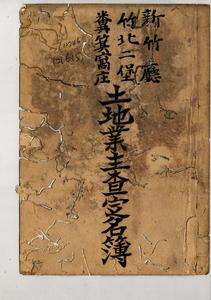 新竹廳
竹北二堡
糞箕窩庄
土地業主查定名簿